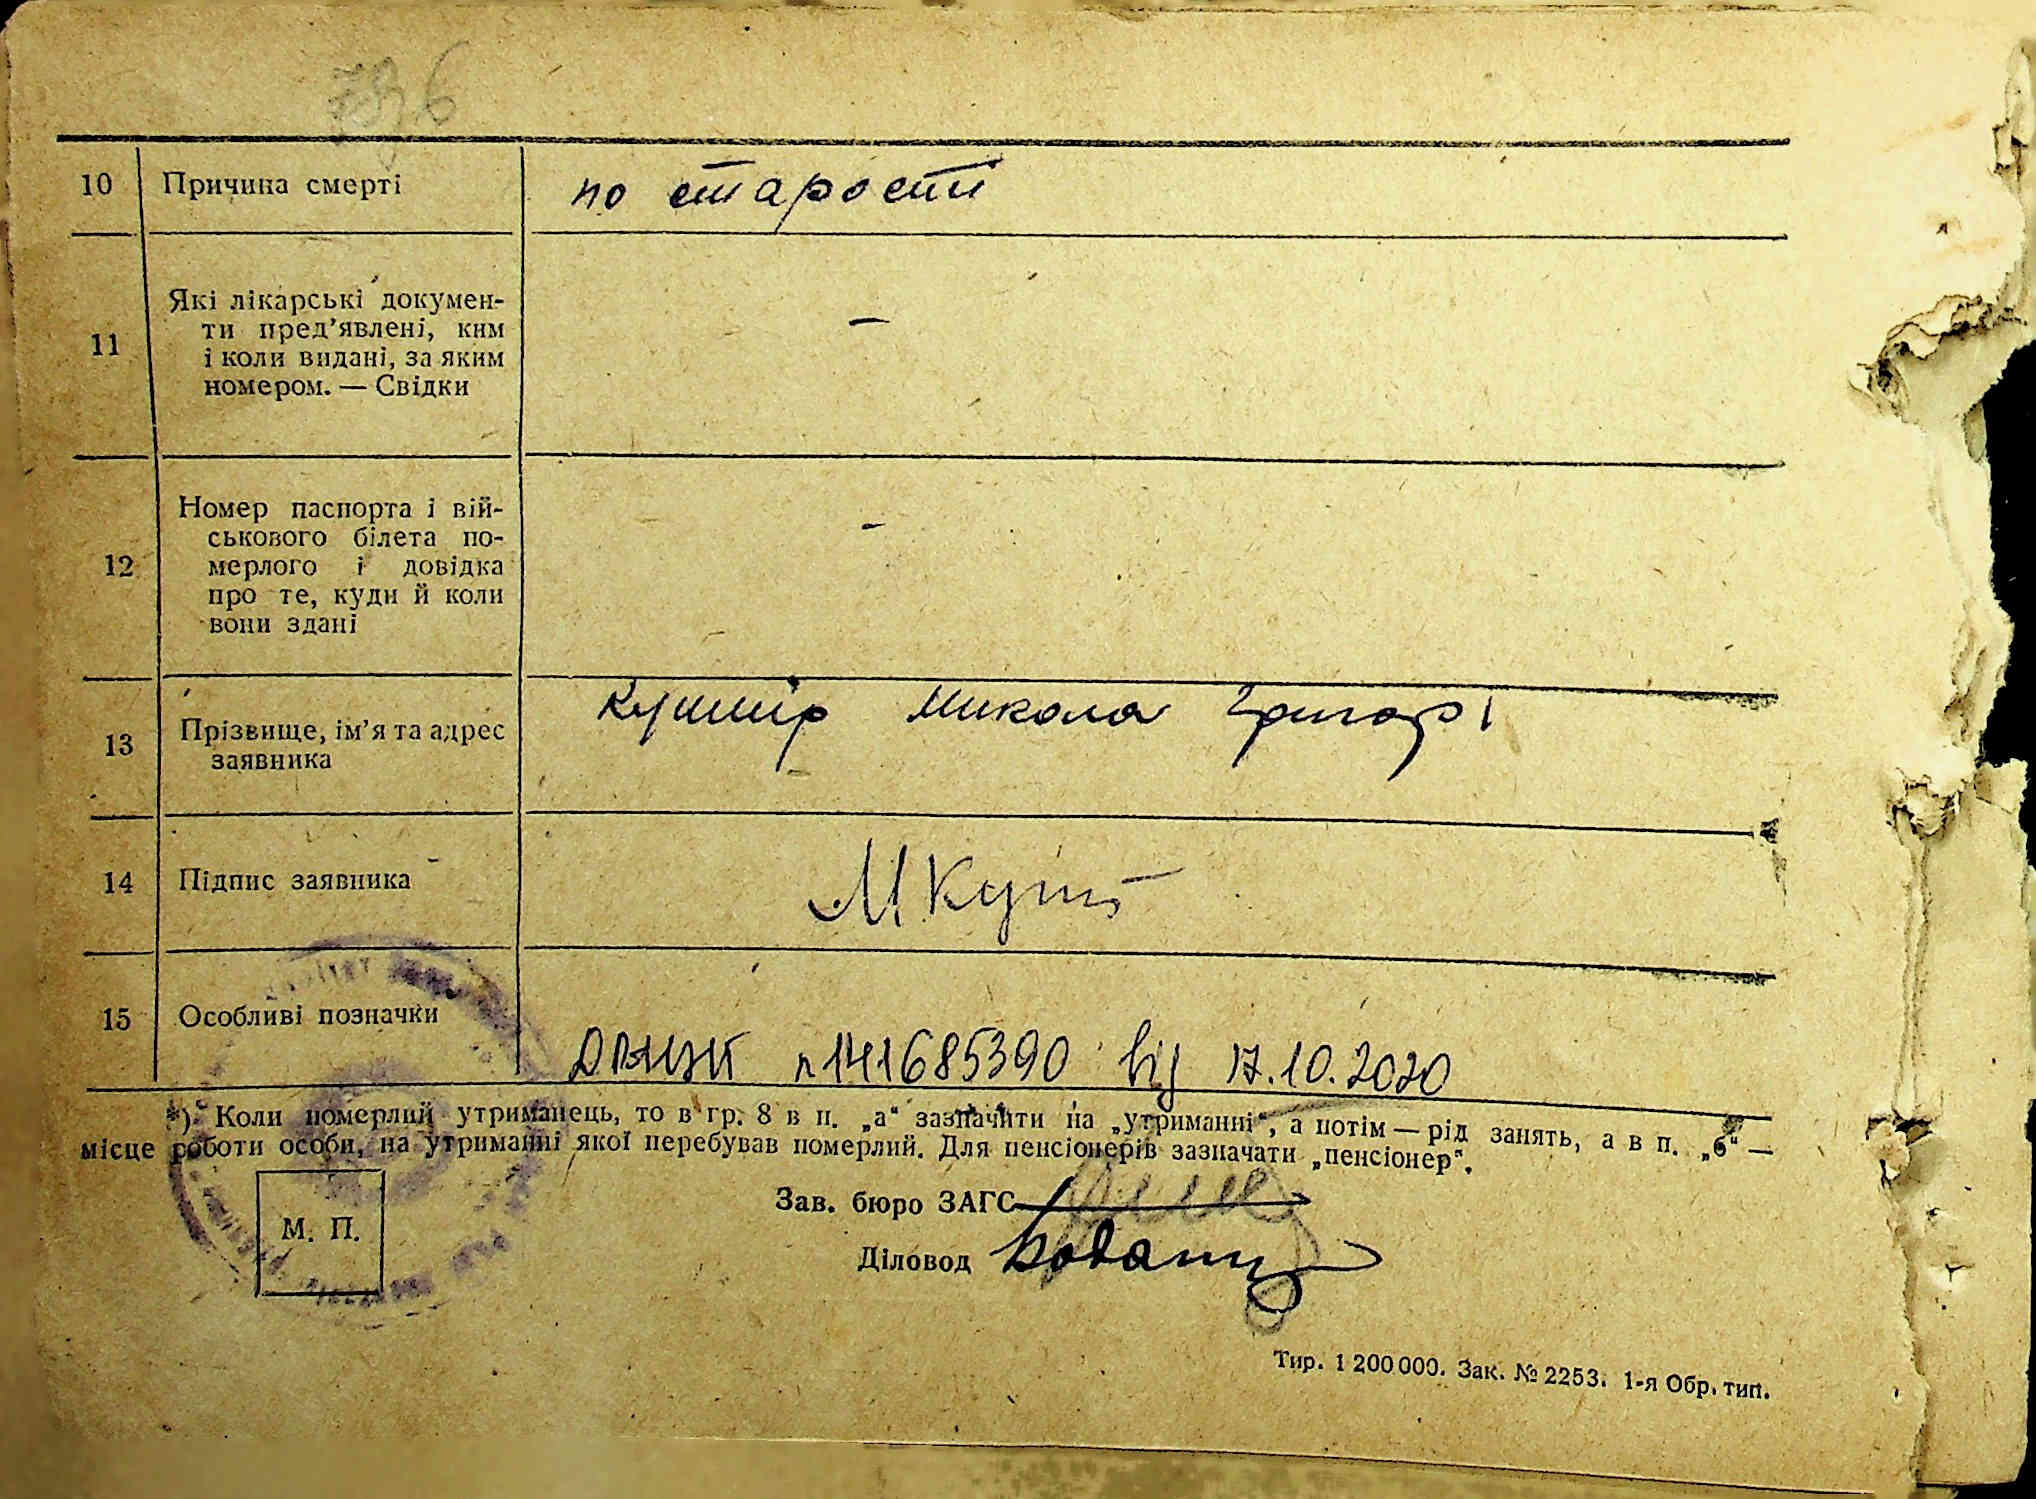 10 Причина смерті по старости
11 Які лікарські докумен-
ти пред'явлені, ким
і коли видані, за яким
номером. — Свідки —
12 Номер паспорта і вій-
ськового білета по-
мерлого і довідка
про те, куди й коли
вони здані —
13 Прізвище, ім'я та адрес
заявника Кушнір Микола Григорі
14 Підпис заявника М Куш
15 Особливі позначки
141685390 від 17.10.2020
*) Коли померлий утриманець, то в гр. 8 в п. „а“ зазначити на „утриманні“, а потім — рід занять, а в п. „б“ —
місце роботи особи, на утриманні якої перебував померлий. Для пенсіонерів зазначати „пенсіонер“.
Зав. бюро ЗАГС
М. П.
Діловод
Тир. 1 200 000. Зак. № 2253. 1-я Обр. тип.